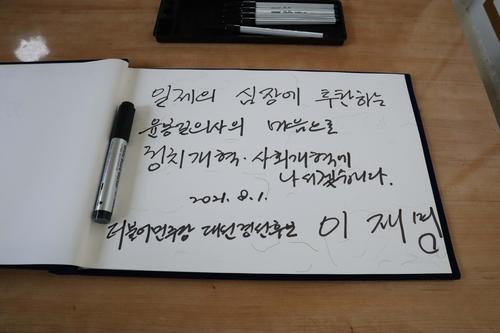 일제의 심장에 투탄하는
윤봉길의사의 마음으로
정치개혁·사회개혁에
나서겠습니다.
2021. 8. 1.
더불어민주당 대선경선후보 이재명